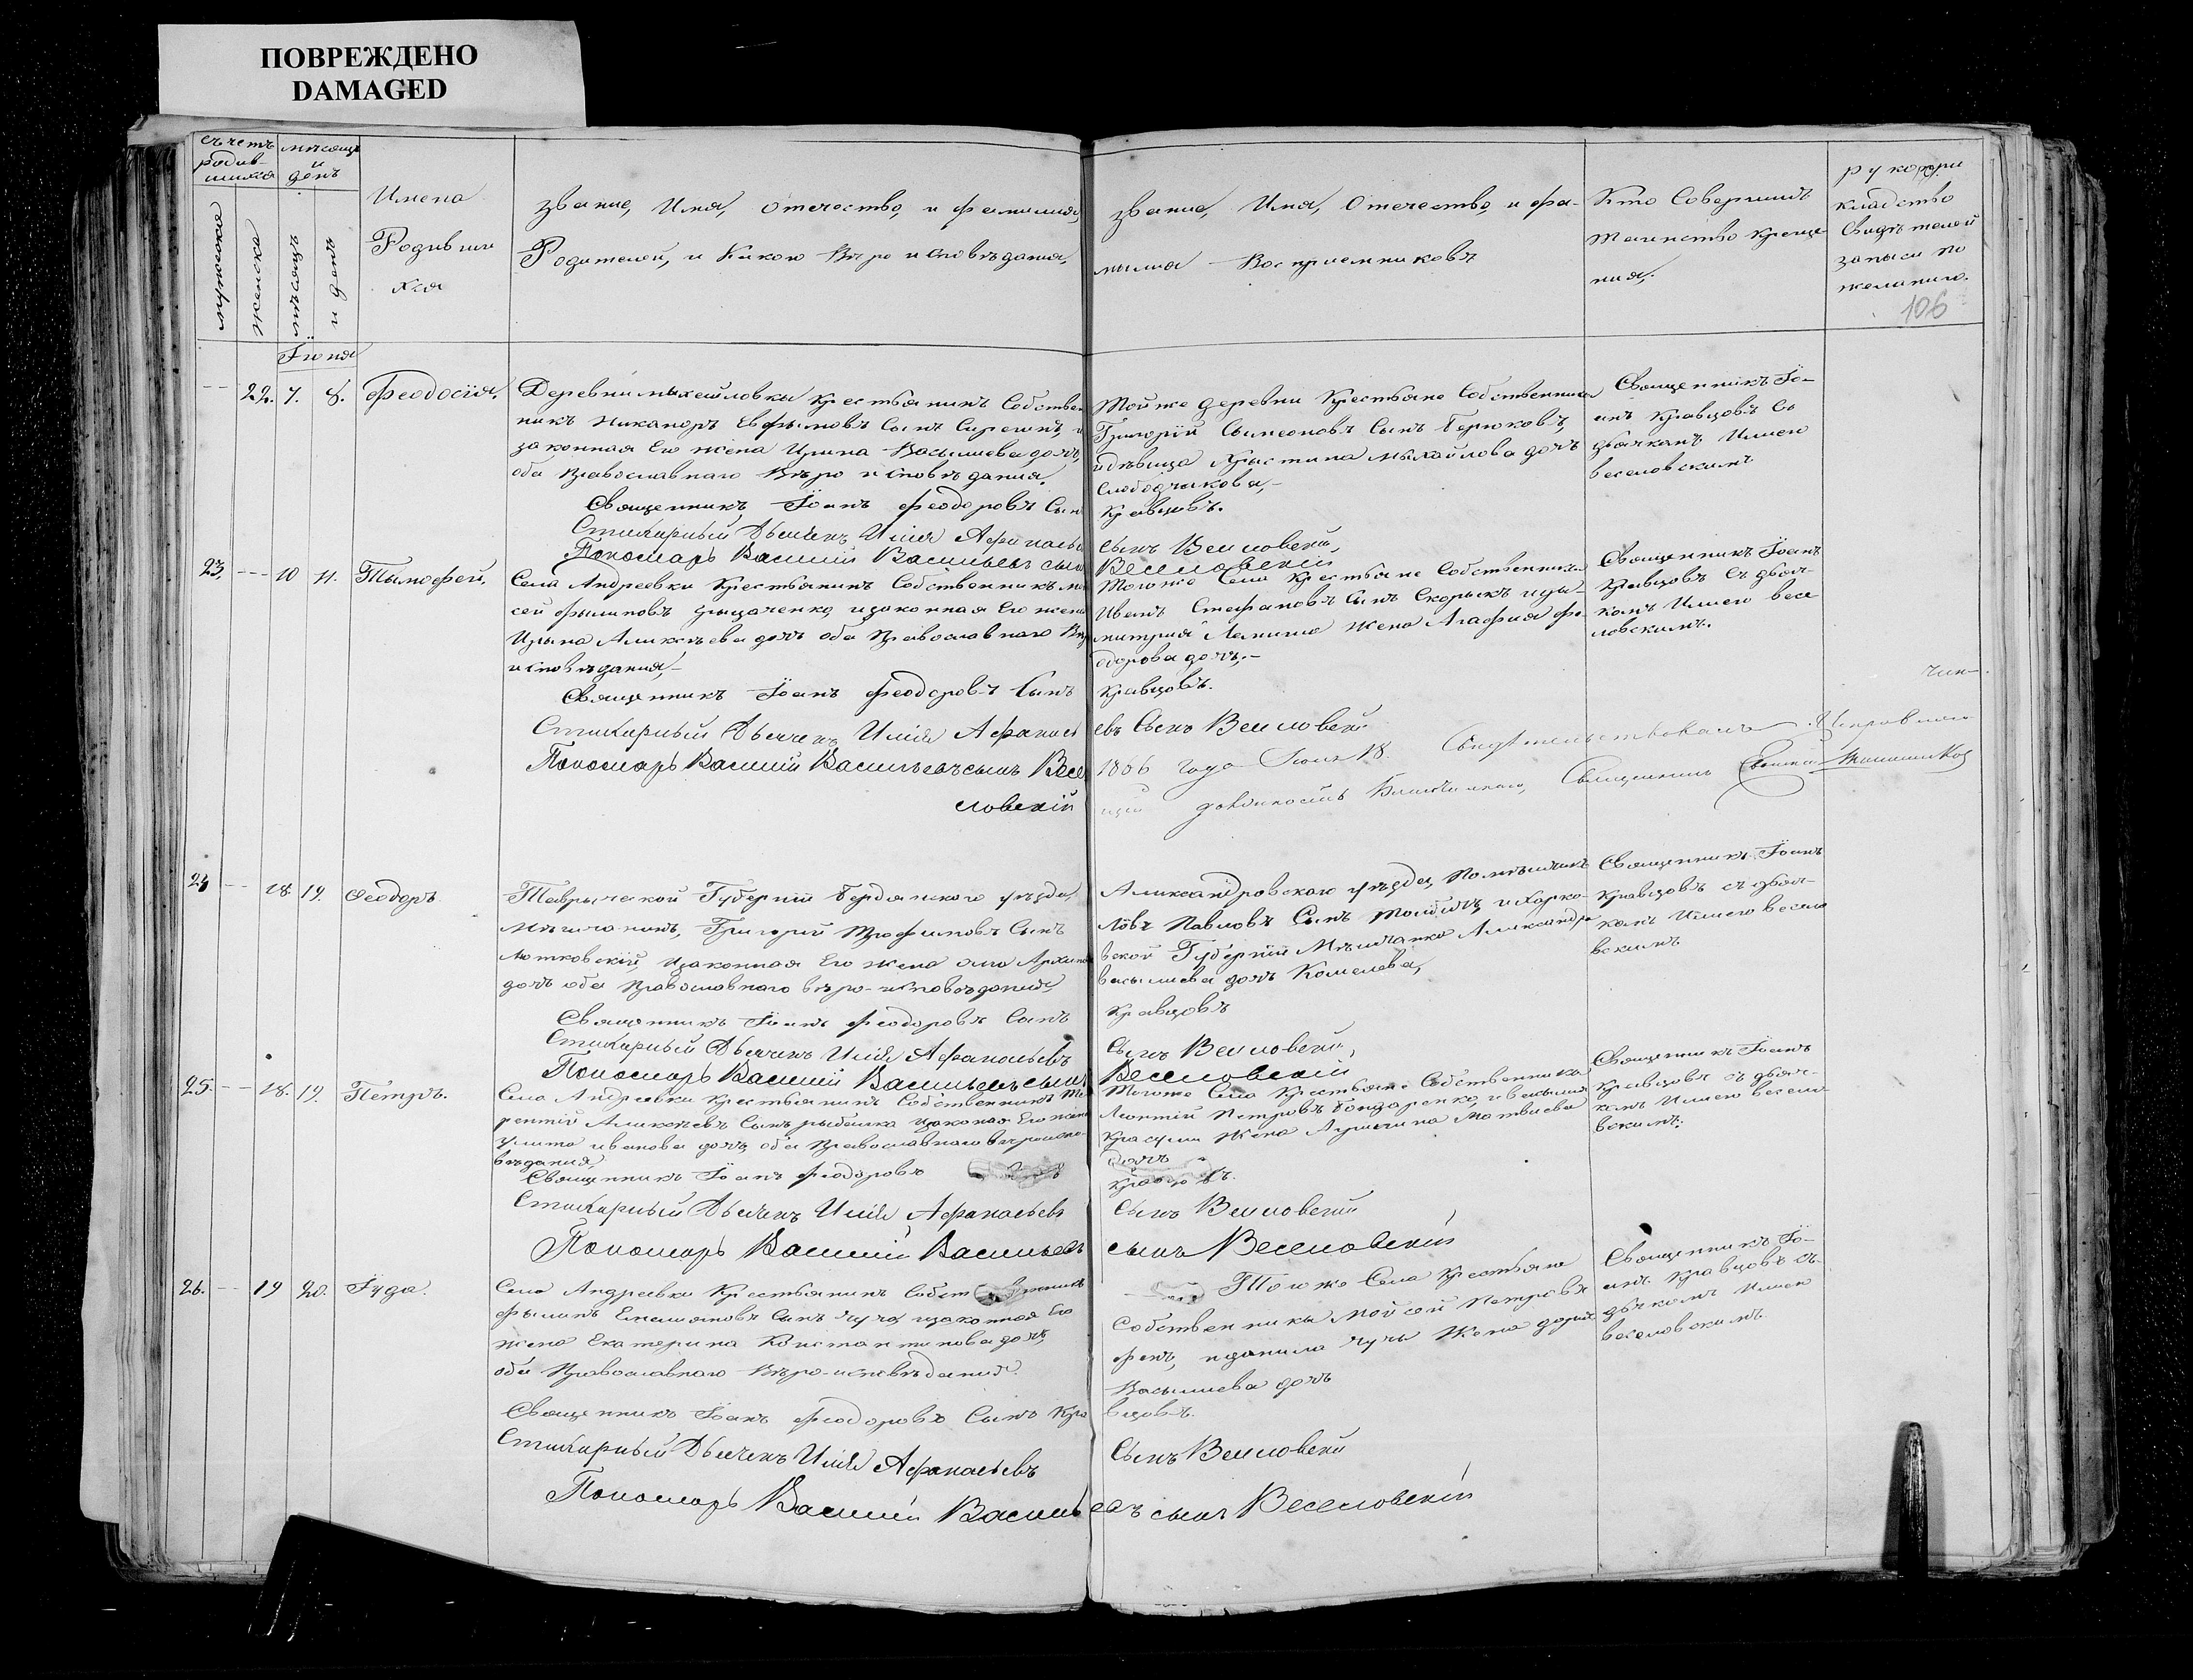 ПОВРЕЖДЕНО
DAMAGED
съчетъ родив-шихся
мужеска
женска
мѣсяцъ и день
мѣсяцъ
и день
Имена
Родивши
хся
Звание, Имя, Отчество, и фамилия,
Родителей, и Какого Вѣро исповѣдания,
Звание, Имя, Отчество, и фа-
милия Восприемниковъ
Кто Совершилъ
таинство креще-
ния,
рукопри
кладство
Свидѣтелей
записи по
желанию.
106
Їюня
22. 7. 8. Феодосїя,
Деревни михайловки крестьянинъ Собствен
никъ Никаноръ Евфимовъ Сынъ
законная Его жена Ирина Васылиева дочь,
оба Православнаго Вѣро исповѣдания,
Священникъ Їоанъ Феодоровъ Сынъ
Стихарный Дьячекъ Илїя Афанасьи
Пономарь Василїй Васильевъ сынъ
Той же деревни Крестьяне Собственники
Григорїй Сымеоновъ Сынъ Бирюковъ,
и дѣвица Христина михайлова дочь
Слободчикова,-
Кравцовъ.
Сынъ Веселовскій,
Веселовскій
Священникъ Їо-
анъ Кравцовъ Съ
дьячкомъ Илиею
веселовскимъ
23. - 10 11. Тымофей.
Села Андреевки Крестьянинъ Собственникъ мо
сей Филиповъ Грыцаченко, и законная Его жена
Ирина Алиексѣева дочь оба Православнаго Вѣр
исповѣдания,-
Священникъ Їоанъ Феодоровъ Сынъ
Стихарный Дьячекъ Илїя Афанась
Пономарь Василїй Васильевъ сынъ Весе
ловскій
Тогоже Села Крестьяне Собственники
Иванъ Стефановъ Сынъ Скорыкъ иды-
митрия жена Агафия фе-
одорова дочь,-
Кравцовъ.
евъ Сынъ Веселовскій
1886 года Июня 18. Свидѣтельствовалъ Исправляю-
щій должность Благочиннаго, Священникъ
Священникъ Їоанъ
Кравцовъ Съ дьяч-
комъ Илиею весе
ловскимъ.
24 - 18. 19. Феодоръ
Таврической Губернїи Бердянского уѣзда,
Мѣщанинъ, Григорїй Трофимовъ Сынъ
Лотковскїй, и законная Его жена
дочь оба Православнаго вѣро-исповѣдания,
Священникъ Їоанъ Феодоровъ Сынъ
Стихарный Дьячекъ Илїя Афанасьевъ
Пономарь Василїй Васильевъ сынъ
Александровскаго уѣзда, Помѣщикъ
Павловъ Сынъ и Харко-
вской Губернїи Мѣщанка Александра
васылиева дочь Комелева,
Кравцовъ
Сынъ Веселовскій,
Веселовскій
Священникъ Їоанъ
Кравцовъ съ дьяч-
комъ Илиею весело
вскимъ
25. - 18. 19. Петръ.
Села Андреевки Крестьянинъ Собственникъ Те
рентїй Алиексѣевъ Сынъ рыбалка и законая Его жена
Улита иванова дочь, оба Православнаго вѣроиспо-
вѣдания,
Священникъ Їоанъ Феодоровъ
Стихарный Дьячекъ Илїя Афанасьевъ
Пономарь Василїй Васильевъ
Тогоже Села Крестьяне Собственники
Леонтїй Петровъ Бондаренко, и васылия
жена Матвиева
дочь
Кравцовъ.
Сынъ Веселовскій
сынъ Веселовскій
Священникъ Їоанъ
Кравцовъ съ дьяч-
комъ Илиею весело-
вскимъ.
26. - 19 20. Їуда.
Села Андреевки Крестьянинъ Собственникъ
Филипъ Емелияновъ Сынъ и законная Его
жена Екатерина Константинова дочь,
оба Православнаго Вѣро-исповѣдания.
Священникъ Їоанъ Феодоровъ Сынъ Кра
Стихарный Дьячекъ Илїя Афанасьевъ
Пономарь Василїй Василь
Тогоже Села Крестьяне
Собственники Мойсей Петровъ
и данила жена дария
Васылиева дочь
вцовъ.
Сынъ Веселовскій
евъ сынъ Веселовскій
Священникъ Їо-
анъ Кравцовъ съ
дьячкомъ Илиею
веселовскимъ.